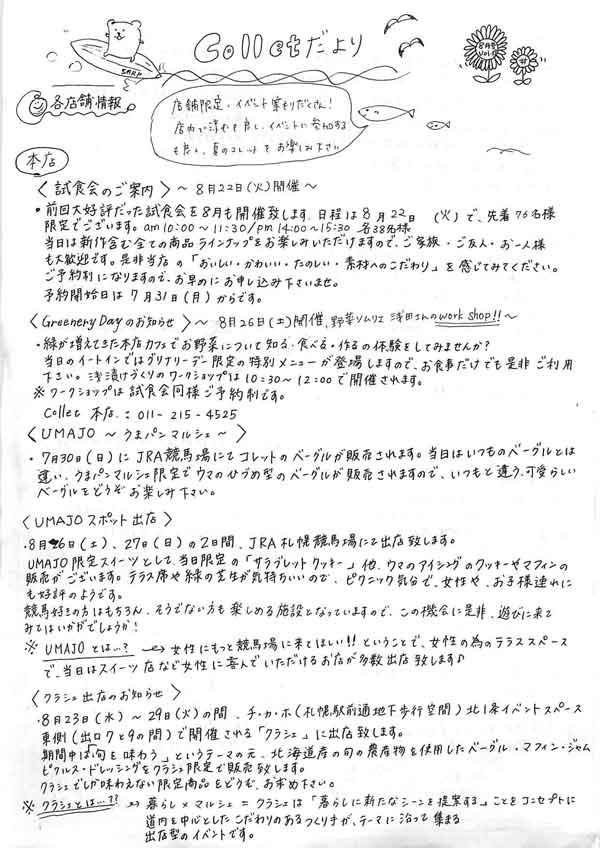 Colletだより
SURF
8月号
各店舗情報
店舗限定・イベント案内だくさん!
店内で涼むも良し、イベントに参加する
も良し、夏のコレットをお楽しみ下さい
本店
〈試食会のご案内〉～8月22日(火)開催～
・前回大好評だった試食会を8月も開催致します。日程は8月22日(火)で、先着76名様
限定でございます。am10:00～11:30/pm14:00～15:30 各38名様
当日は新作含む全ての商品ラインナップをお楽しみいただけますので、ご家族・ご友人・お一人様
も大歓迎です。是非当店の「おいしい・かわいい・たのしい・素材へのこだわり」を感じてみてください。
ご予約制になりますので、お早めにお申し込み下さいませ。
予約開始日は7月31日(月)からです。
〈Greenery Dayのお知らせ〉～8月26日(土)開催、野菜ソムリエ 浅田さんのwork shop!!～
・緑が増えてきた本店カフェでお野菜について知る・食べる・作るの体験をしてみませんか?
当日のイートインではグリナリーデー限定の特別メニューが登場しますので、お食事だけでも是非ご利用
下さい。浅漬けづくりのワークショップは10:30～12:00で開催されます。
※ワークショップは試食会同様ご予約制です。
Collet 本店:011-215-4525
〈UMAJO～うまパンマルシェ～〉
・7月30日(日)にJRA競馬場にてコレットのベーグルが販売されます。当日はいつものベーグルとは
違い、うまパンマルシェ限定でウマのひづめ型のベーグルが販売されますので、いつもと違う可愛らしい
ベーグルをどうぞお楽しみ下さい。
〈UMAJOスポット出店〉
・8月26日(土)、27日(日)の2日間、JRA札幌競馬場にて出店致します。
UMAJO限定スイーツとして、当日限定の「サラブレットクッキー」他、ウマのアイシングのクッキーやマフィンの
販売がございます。テラス席や緑の芝生が気持ちいいので、ピクニック気分で、女性や、お子様連れに
も好評のようです。
競馬好きの方はもちろん、そうでない方も楽しめる施設となっていますので、この機会に是非、遊びに来て
みてはいかがでしょうか!
※UMAJOとは…? → 女性にもっと競馬場に来てほしい!!ということで、女性の為のテラススペース
で、当日はスイーツ店など女性に喜んでいただけるお店が多数出店致します♪
〈クラシェ出店のお知らせ〉
・8月23日(水)～29日(火)の間、チ・カ・ホ(札幌駅前通地下歩行空間)北1条イベントスペース
東側(出口7と9の間)で開催される「クラシェ」に出店致します。
期間中は「旬を味わう」というテーマの元、北海道産の旬の農産物を使用したベーグル・マフィン・ジャム
ピクルス・ドレッシングをクラシェ限定で販売致します。
クラシェでしか味わえない限定商品をどうぞ、お求め下さい。
※クラシェとは…?? → 暮らし×マルシェ=クラシェは「暮らしに新たなシーンを提案する」ことをコンセプトに
道内を中心としたこだわりのあるつくり手が、テーマに沿って集まる
出店型のイベントです。